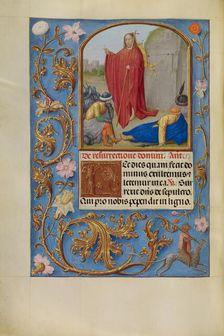 De resurrectione domini. Ant.
Ec dies quam fecit do
minus exultemus et
letemur in ea. V. Sur
rexit dominus de sepulcro.
Qui pro nobis pependit in ligno.